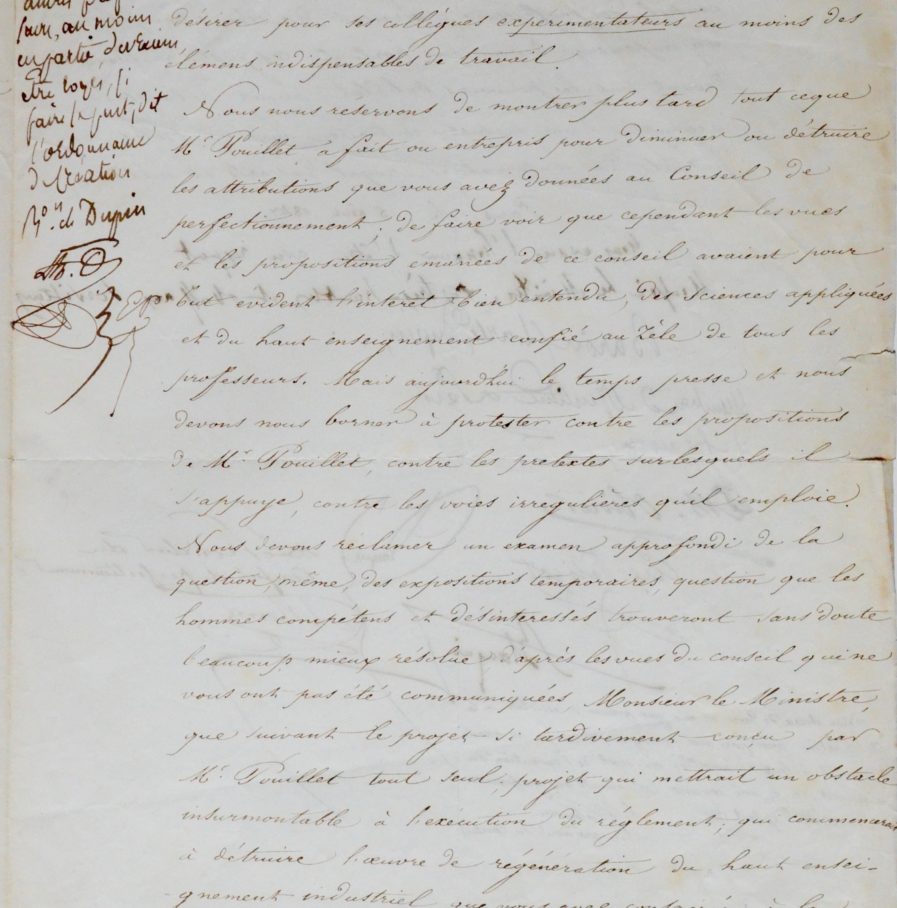 faire, au moins
en partie, devraient
être logés, si
faire se peut, dit
l'ordonnance
de Création
Bon. ch Dupin
désirer pour ses collègues expérimentateurs au moins des
élémens indispensables de travail.
Nous nous reservons de montrer plus tard tout ceque
Mr. Pouillet à fait ou entrepris pour diminuer ou détruire
les attributions que vous avez données au Conseil de
perfectionnement; de faire voir que cependant les vues
et les propositions emanées de ce conseil avaient pour
but evident l'interet bien entendu, des sciences appliquées
et du haut enseignement confié au Zèle de tous les
professeurs. Mais aujourd'hui le temps presse et nous
devons nous borner à protester contre les propositions
de Mr. Pouillet, contre les pretextes surlesquels il
s'appuye, contre les voies irregulières qu'il emploie.
Nous devons reclamer un examen approfondi de la
question même, des expositions temporaires, question que les
hommes compétens et désinteressés trouveront sans doute
beaucoup mieux résolue d'après les vues du conseil qui ne
vous ont pas été communiquées, Monsieur le Ministre,
que suivant le projet si tardivement conçu par
Mr. Pouillet tout seul; projet qui mettrait un obstacle
insurmontable à l'exécution du réglement; qui commencerait
à détruire l'œuvre de régénération du haut ensei-
-gnement industriel que vous avez